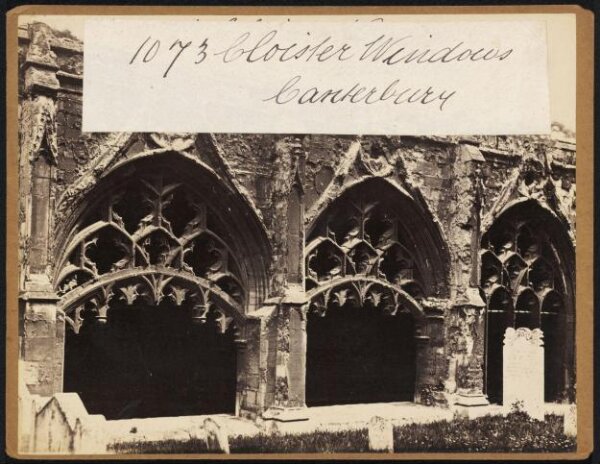 1073 Cloister Windows
Canterbury